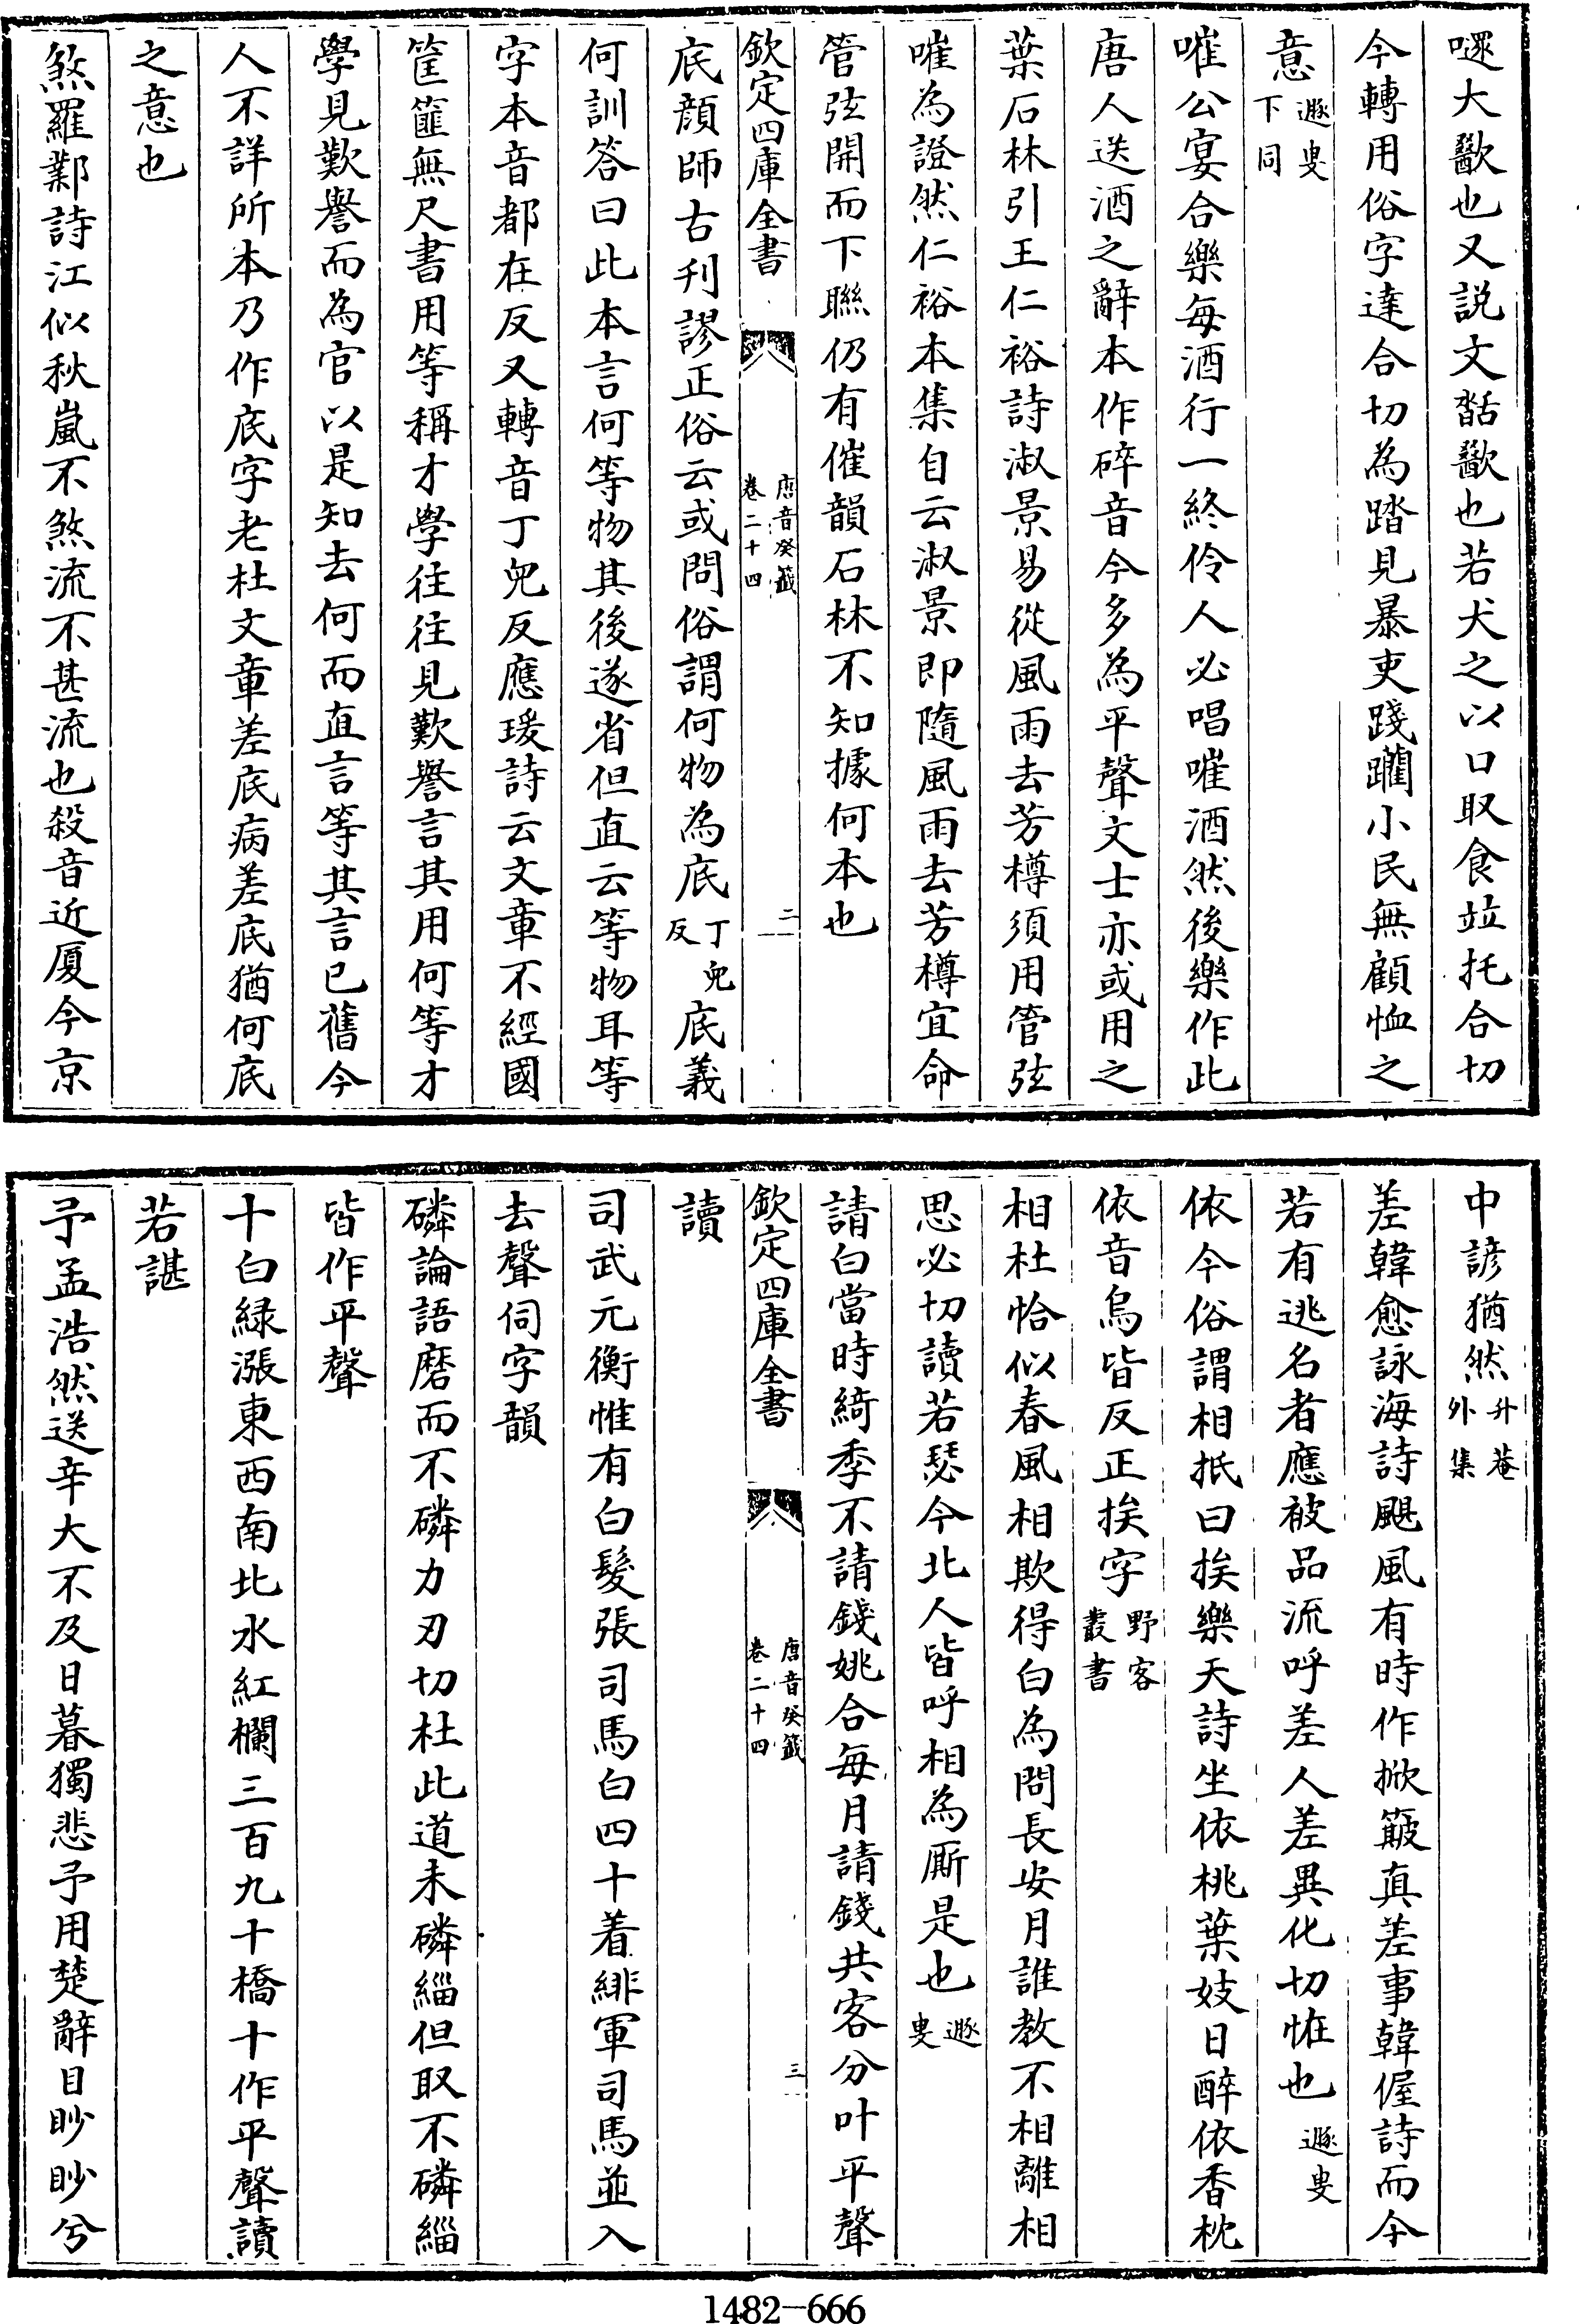 嚃大歠也又説文䑜歠也若犬之以口取食竝托合切
今轉用俗字達合切為踏見暴吏踐躪小民無顧恤之
意遯叟下同
嗺公宴合樂每酒行一終伶人必唱嗺酒然後樂作此
唐人送酒之辭本作碎音今多為平聲文士亦或用之
葉石林引王仁裕詩淑景易從風雨去芳樽須用管弦
嗺為證然仁裕本集自云淑景即隨風雨去芳樽宜命
管弦開而下聯仍有催韻石林不知據何本也
欽定四庫全書 唐音癸籤 卷二十四 二
底顔師古刋謬正俗云或問俗謂何物為底丁兒反底義
何訓答曰此本言何等物其後遂省但直云等物耳等
字本音都在反又轉音丁兒反應瑗詩云文章不經國
筐篚無尺書用等稱才學往往見歎譽言其用何等才
學見歎譽而為官以是知去何而直言等其言已舊今
人不詳所本乃作底字老杜文章差底病差底猶何底
之意也
煞羅鄴詩江似秋嵐不煞流不甚流也殺音近厦今京
中諺猶然升菴外集
差韓愈詠海詩颶風有時作掀簸真差事韓偓詩而今
若有逃名者應被品流呼差人差異化切恠也遯叟
依今俗謂相抵曰挨樂天詩坐依桃葉妓日醉依香枕
依音烏皆反正挨字野客叢書
相杜恰似春風相欺得白為問長安月誰教不相離相
思必切讀若瑟今北人皆呼相為厮是也遯叟
請白當時綺季不請錢姚合每月請錢共客分叶平聲
欽定四庫全書 唐音癸籤 卷二十四 三
讀
司武元衡惟有白髮張司馬白四十着緋軍司馬並入
去聲伺字韻
磷論語磨而不磷力刃切杜此道未磷緇但取不磷緇
皆作平聲
十白緑漲東西南北水紅欄三百九十橋十作平聲讀
若諶
予孟浩然送辛大不及日暮獨悲予用楚辭目眇眇兮
1482-666